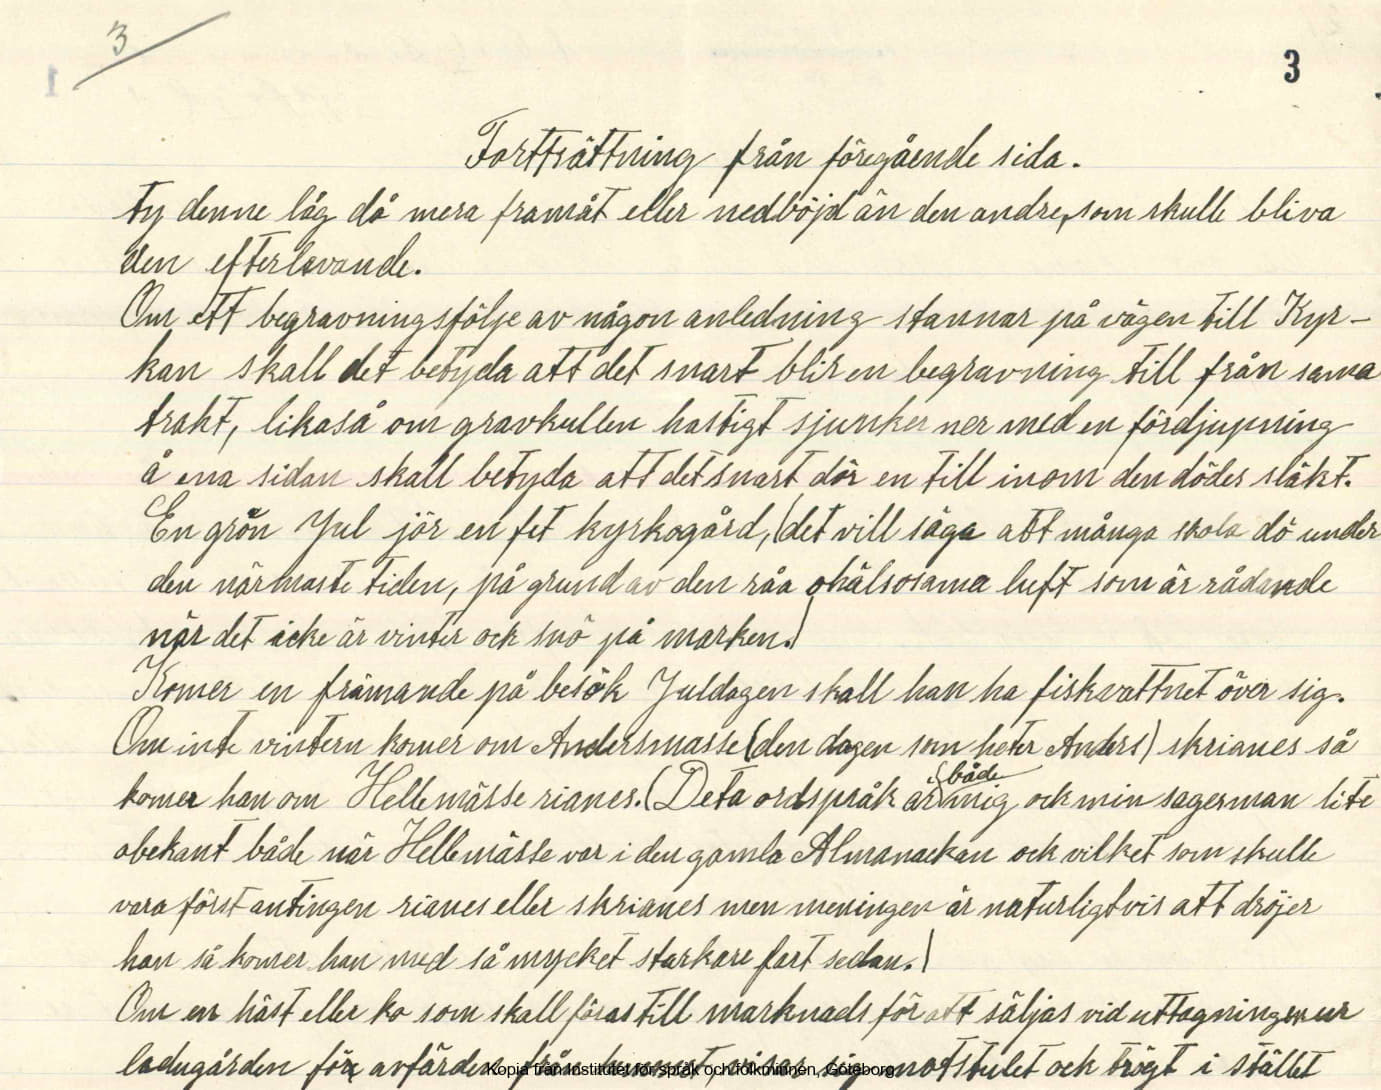 3
3
1
Forttsättning från föregående sida.
ty denne låg då mera framåt eller nedböjd än den andre, som skulle bliva
den efterlevande.
Om ett begravningsfölje av någon anledning stannar på vägen till Kyr-
kan skall det betyda att det snart blir en begravning till från sama
trakt, likaså om gravkullen hastigt sjunker ner med en fördjupning
å ena sidan skall betyda att det snart dör en till inom den dödes släkt.
En grön Jul jör en fet kyrkogård, (det vill säga att många skola dö under
den närmaste tiden, på grund av den råa ohälsosama luft som är rådande
när det icke är vinter ock snö på marken.)
Komer en främande på besök Juldagen skall han ha fiskvattnet över sig.
Om inte vintern komer om Andersmasse (den dagen som heter Anders) skrianes så
komer han om Hellemässe rianes. (Deta ordspråk är både mig ock min sagerman lite
obekant både när Hellemässe var i den gamla Almanackan ock vilket som skulle
vara först antingen rianes eller skrianes men meningen är naturligtvis att dröjer
han så komer han med så mycket starkare fart sedan.)
Om en häst eller ko som skall föras till marknads för att säljas vid uttagningen ur
ladugården före avfärden från hemmet, visar sig motstulet ock trögt i stället
Kopia från Institutet för språk och folkminnen, Göteborg